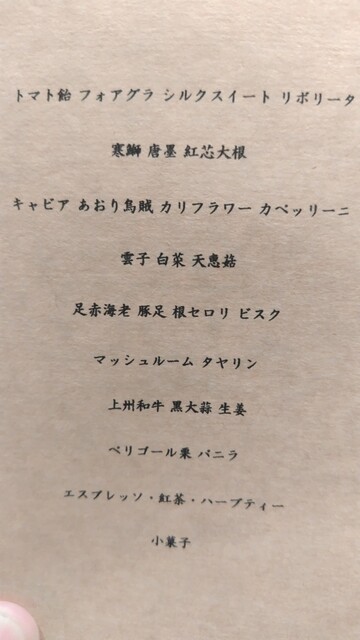 トマト飴 フォアグラ シルクスイート リボリータ
寒鰤 唐墨 紅芯大根
キャビア あおり烏賊 カリフラワー カペッリーニ
雲子 白菜 天恵菇
足赤海老 豚足 根セロリ ビスク
マッシュルーム タヤリン
上州和牛 黒大蒜 生姜
ペリゴール栗 バニラ
エスプレッソ・紅茶・ハーブティー
小菓子